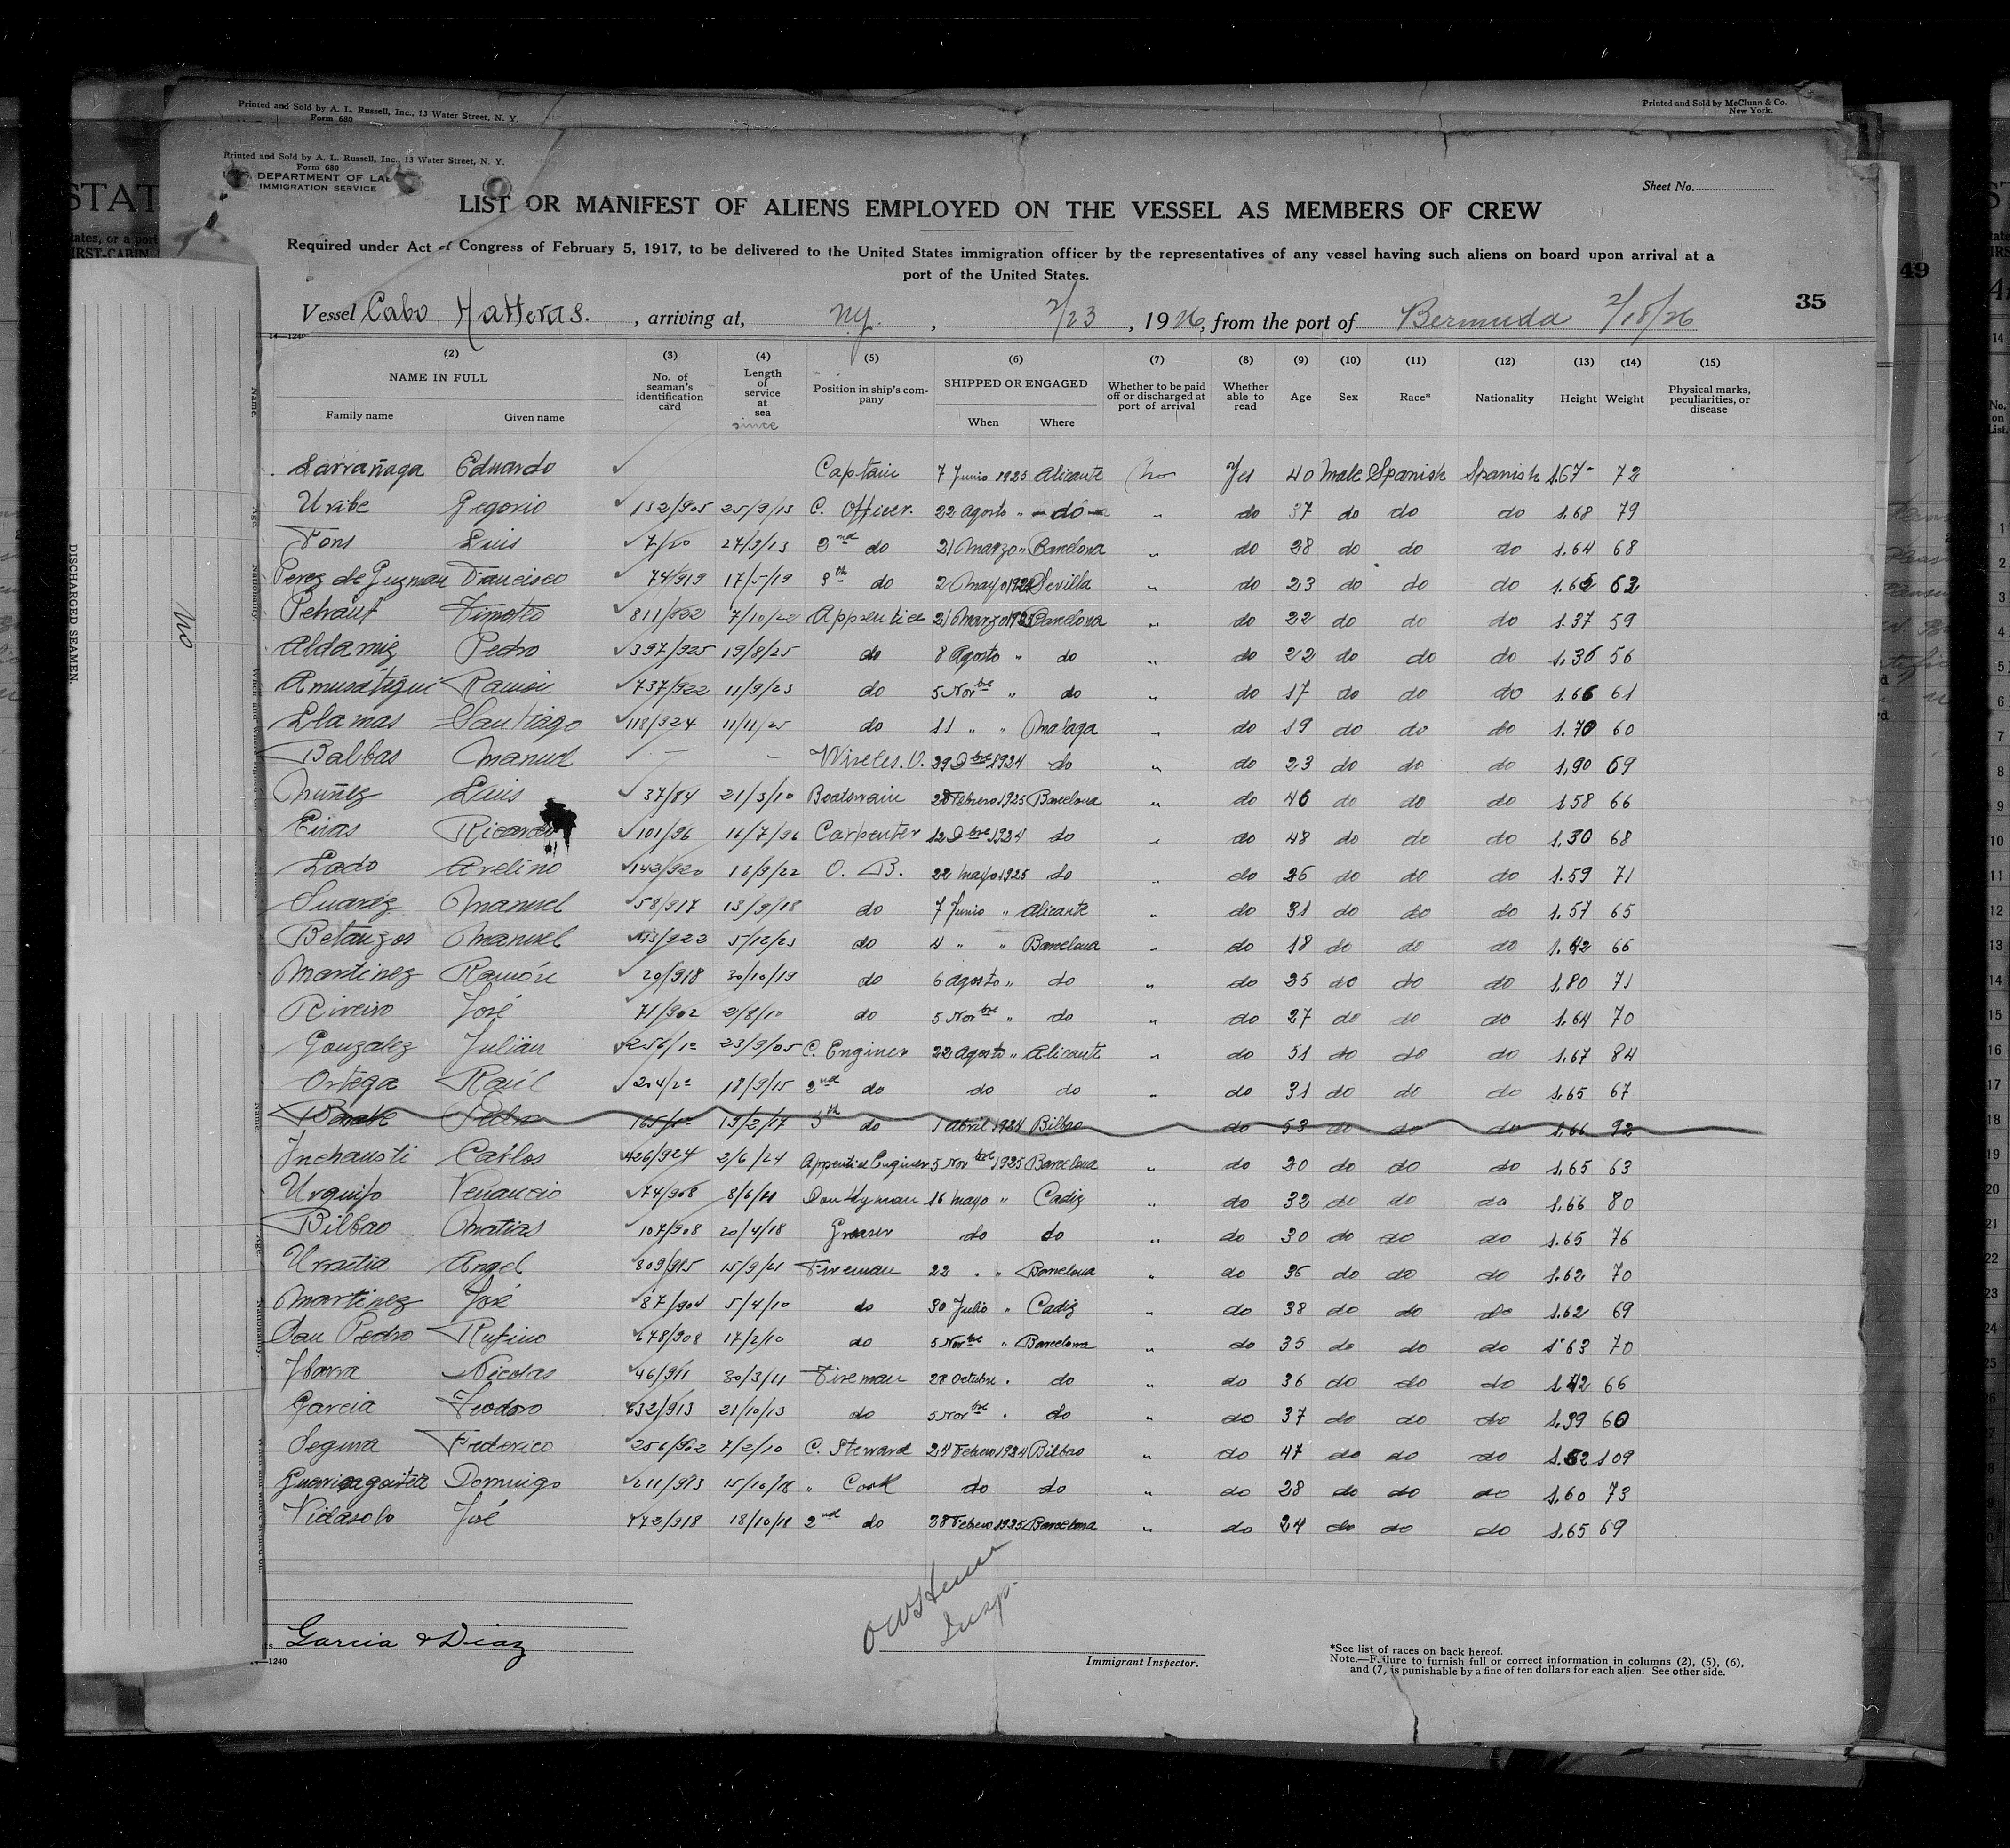 Printed and Sold by A. L. Russell, Inc., 13 Water Street, N. Y.
Form 680
Printed and Sold by McClunn & Co.
New York.
Printed and Sold by A. L. Russell, Inc., 13 Water Street, N. Y.
Form 680
DEPARTMENT OF
IMMIGRATION SERVICE
Sheet No.
LIST OR MANIFEST OF ALIENS EMPLOYED ON THE VESSEL AS MEMBERS OF CREW
Required under Act of Congress of February 5, 1917, to be delivered to the United States immigration officer by the representatives of any vessel having such aliens on board upon arrival at a
port of the United States.
35
49
Vessel Cabo Hatteras. , arriving at, Ny. , 2/23 , 1926, from the port of Bermuda 2/18/26
14—1240
(2) (3) (4) (5) (6) (7) (8) (9) (10) (11) (12) (13) (14) (15)
NAME IN FULL No. of seaman's identification card Length of service at sea since Position in ship's company SHIPPED OR ENGAGED Whether to be paid off or discharged at port of arrival Whether able to read Age Sex Race* Nationality Height Weight Physical marks, peculiarities, or disease
Family name Given name When Where
Larrañaga Eduardo Captain 7 Junio 1925 Alicante no Yes 40 Male Spanish Spanish 1.67 72
Uribe Gregorio 132/905 25/9/13 C. Officer. 22 Agosto " do " do 37 do do do 1.68 79
Fons Luis 7/20 27/9/13 2nd do 21 Marzo " Barcelona " do 28 do do do 1.64 68
Perez de Guzman Francisco 74/919 17/5/19 3th do 2 Mayo Sevilla " do 23 do do do 1.65 62
Timoteo 811/922 7/10/22 Apprentice 21 Marzo 1925 Barcelona " do 22 do do do 1.37 59
Aldamiz Pedro 397/925 19/8/25 do 8 Agosto " do " do 22 do do do 56
Amusategui Ramon 737/922 11/9/23 do 5 Novbre " do " do 17 do do do 1.66 61
Llamas Santiago 118/924 11/11/25 do 11 " " Malaga " do 19 do do do 1.70 60
Balbas Manuel — — Wireles. O. 29 Dbre 1924 do " do 23 do do do 1,90 69
Nuñez Luis 37/84 21/3/10 Boatswain Febrero 1925 Barcelona " do 46 do do do 158 66
Ricardo 101/96 16/7/96 Carpenter 12 Dbre 1924 do " do 48 do do do 1.30 68
Lado Avelino 142/920 16/9/22 O. B. 22 Mayo 1925 do " do 26 do do do 1.59 71
Suarez Manuel 58/917 13/9/18 do 7 Junio " Alicante " do 31 do do do 1.57 65
Betanzos Manuel 5/12/23 do 4 " " Barcelona " do 18 do do do 1.42 65
Martinez Ramón 20/918 30/10/19 do 6 Agosto " do " do 25 do do do 1,80 71
Riveiro José 71/902 2/8/10 do 5 Novbre " do " do 27 do do do 1.64 70
Gonzalez Julián 256/12 23/9/05 C. Enginer 22 Agosto " Alicante " do 51 do do do 1.67 84
Ortega Raúl 204/20 18/9/15 2nd do do do " do 31 do do do 1.65 67
Pedro 13/2/17 th do 1 Abril 1924 Bilbao do 53 do do do 1.66 92
Inchausti Carlos 426/924 2/6/24 Apprentice Enginer 5 Novbre 1925 Barcelona " do 20 do do do 1.65 63
Urquijo Venancio 74/908 Donkyman 16 Mayo " Cadiz " do 32 do do do 1.66 80
Bilbao Matias 107/908 20/4/18 Greaser do do " do 30 do do do 1.65 76
Urrutia Angel 809/915 15/9/21 Fireman 22 " " Barcelona " do 36 do do do 1.62 70
Martinez José 87/904 5/4/10 do 30 Julio " Cadiz " do 38 do do do 1.62 69
San Pedro Rufino 678/908 17/2/10 do 5 Novbre " Barcelona " do 35 do do do 1.63 70
Ibarra Nicolas 46/911 30/3/11 Fireman 28 Octubre " do " do 36 do do do 1.42 66
Garcia Teodoro 632/913 21/10/13 do 5 Novbre " do " do 37 do do do 1.39 60
Segura Federico 256/902 7/2/10 C. Steward 24 Febrero 1924 Bilbao " do 47 do do do 109
Domingo 211/913 15/10/18 " Cook do do " do 28 do do do 1.60 73
Vidasolo José 472/918 18/10/18 2nd do 28 Febrero 1925 Barcelona " do 24 do do do 1.65 69
Garcia & Diaz
Insp.
Immigrant Inspector.
—1240
*See list of races on back hereof.
Note.—Failure to furnish full or correct information in columns (2), (5), (6),
and (7, is punishable by a fine of ten dollars for each alien. See other side.
DISCHARGED SEAMEN.
No